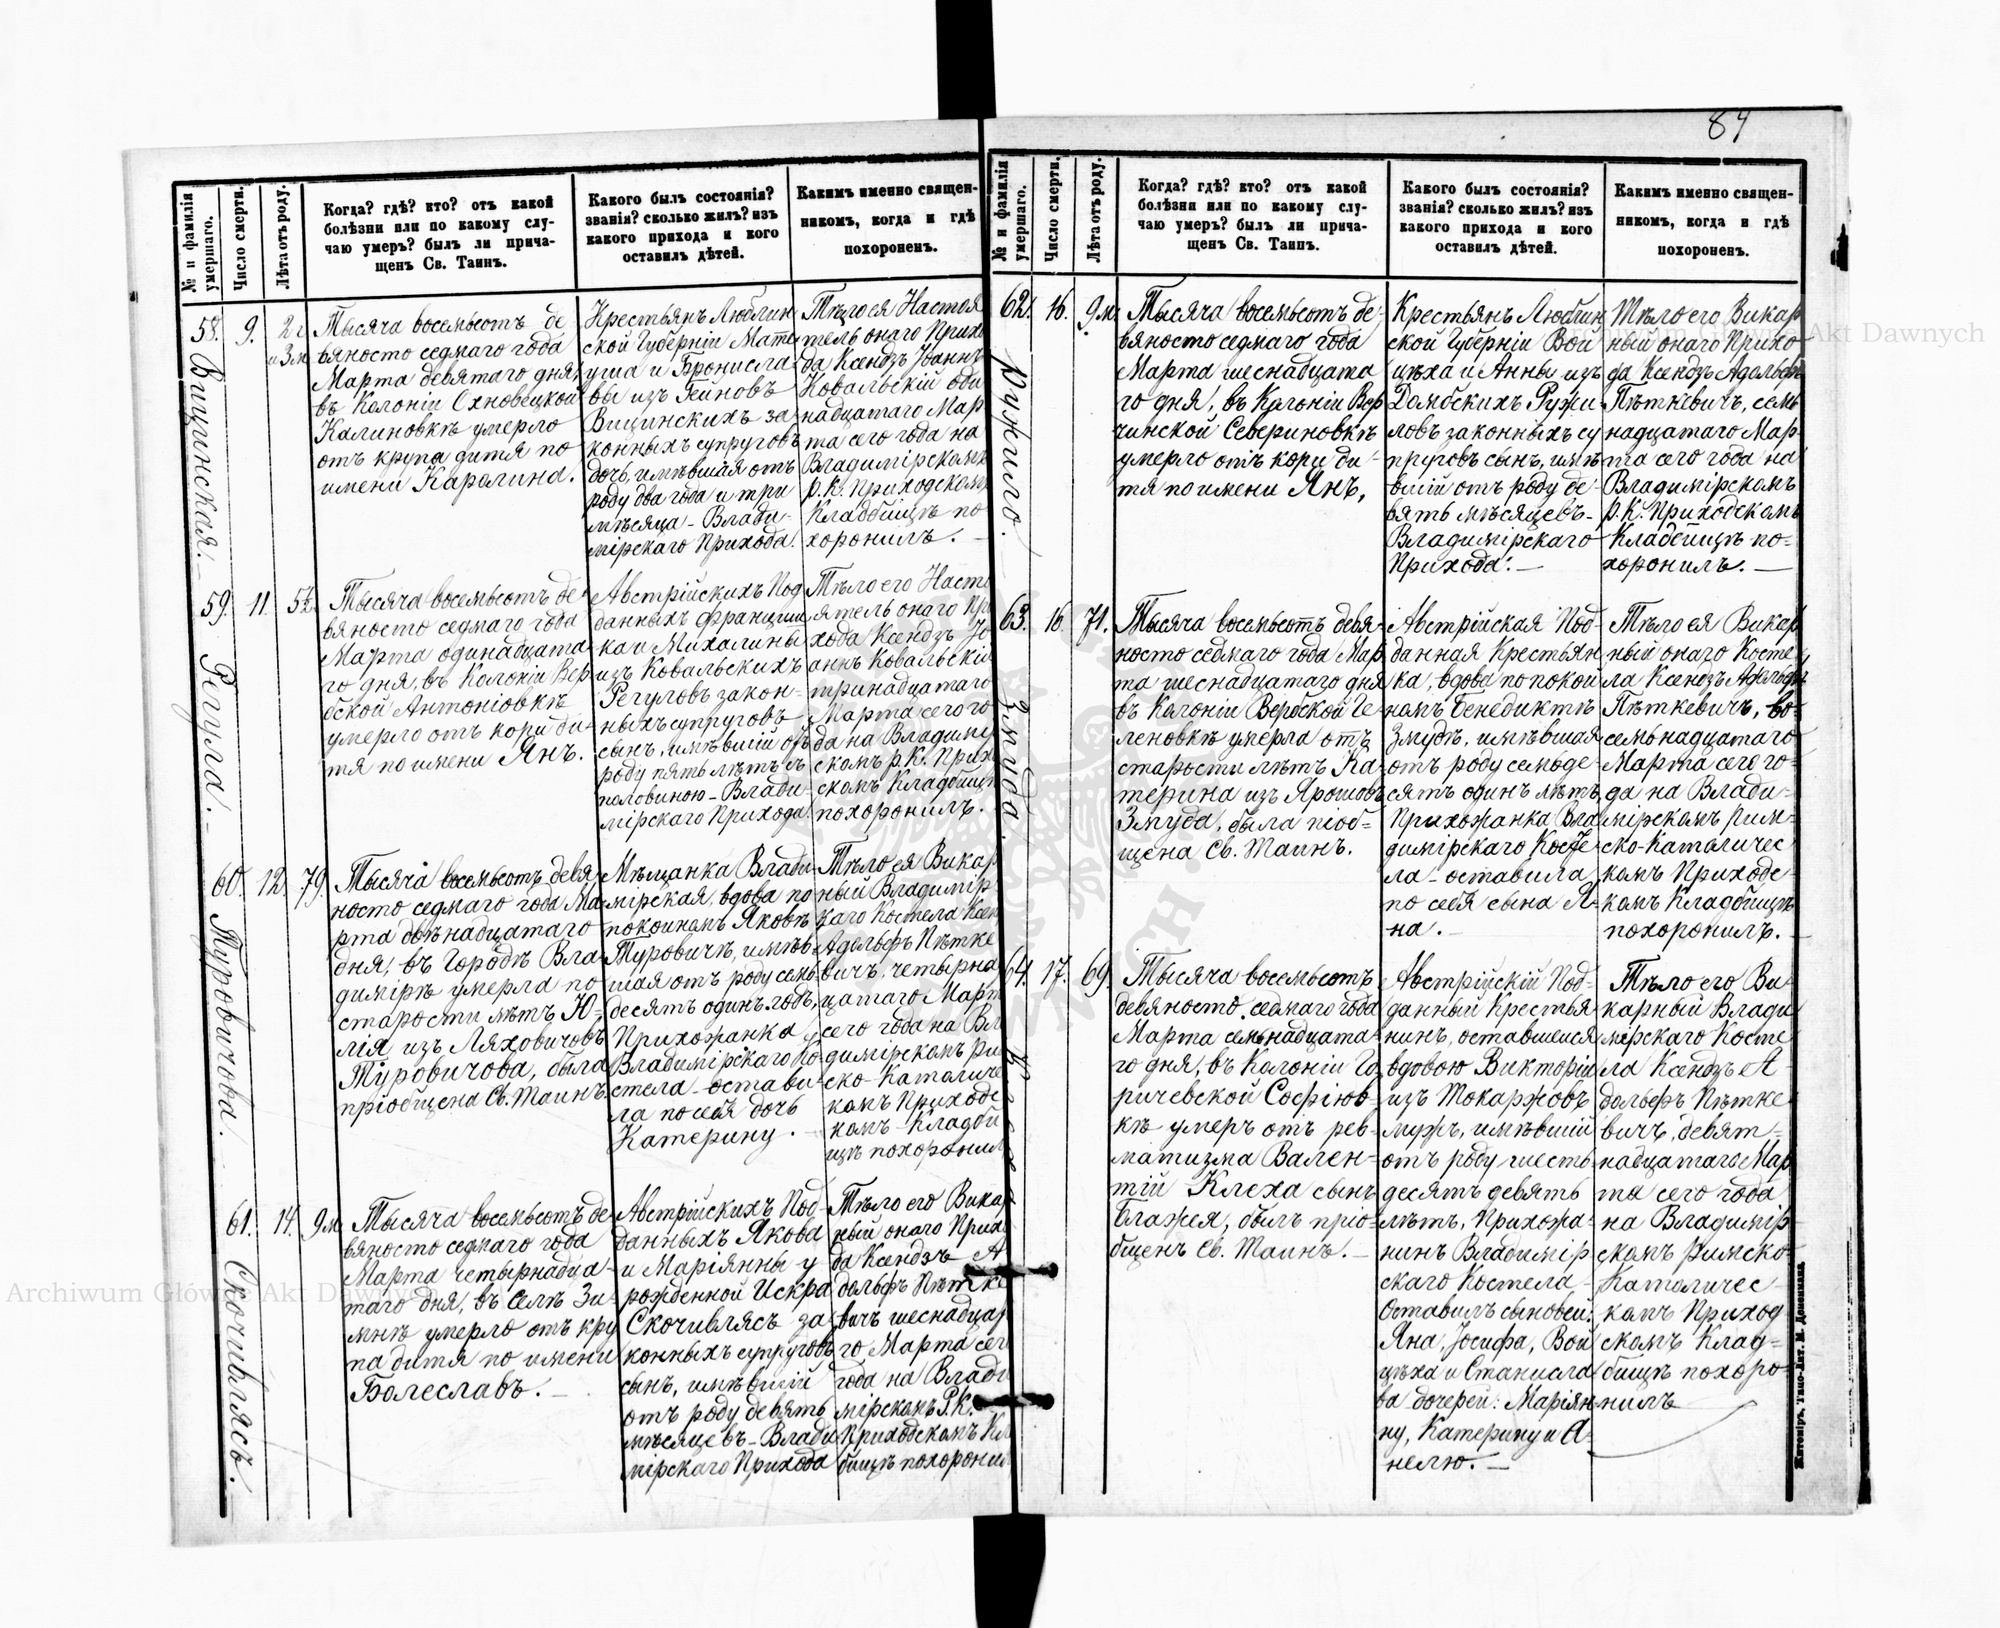 84
№ и фамилія умершаго.
Число смерти.
Лѣта отъ роду.
Когда? гдѣ? кто? отъ какой
болѣзни или по какому слу-
чаю умеръ? былъ ли прича-
щенъ Св. Таинъ.
Какого былъ состоянія?
званія? сколько жилъ? изъ
какого прихода и кого
оставилъ дѣтей.
Какимъ именно священ-
никомъ, когда и гдѣ
похороненъ.
58. Вицинская.
9.
2 г. и 3 м.
Тысяча восемьсотъ де
вяносто седмаго года
Марта девятаго дня,
въ Колоніи Охновецкой
Калиновкѣ умерло
отъ крупа дитя по
имени Каролина.
Крестьянъ Люблин
ской Губерніи Мате
уша и Бронисла
вы изъ Гейновъ
Вицинскихъ за
конныхъ супруговъ
дочь, имѣвшая отъ
роду два года и три
мѣсяца - Влади-
мірскаго Прихода.
Тѣло ея Настоя
тель онаго Прихо
да Ксендзъ Іоаннъ
Ковальскій оди
надцатаго Мар
та сего года на
Владимірскомъ
р. К. Приходском
Кладбищѣ по
хоронилъ. —
59. Регула.
11.
5½
Тысяча восемьсотъ де
вяносто седмаго года
Марта одинадцата
го дня, въ Колоніи Вер
бской Антоніовкѣ
умерло отъ кори ди-
тя по имени Янъ.
Австрійскихъ Под
данныхъ Францишка
и Михалины
изъ Ковальскихъ
Регуловъ закон-
ныхъ супруговъ
сынъ, имѣвшій отъ
роду пять лѣтъ съ
половиною - Влади-
мірскаго Прихода.
Тѣло его Насто
ятель онаго При
хода Ксендзъ Іо
аннъ Ковальскій
тринадцатаго
Марта сего го
да на Владимір
скомъ р. К. Прихо
скомъ Кладбищѣ
похоронилъ.
60. Туровичова.
12.
79.
Тысяча восемьсотъ девя
носто седмаго года Ма-
рта двѣнадцатаго
дня, въ Городѣ Вла-
димірѣ умерла по
старости лѣтъ Ю-
лія изъ Ляховичовъ
Туровичова, была
пріобщена Св. Таинъ.
Мѣщанка Влади
мірская, вдова по
покоиномъ Яковѣ
Туровичѣ, имѣв
шая отъ роду семь
десятъ одинъ годъ,
Прихожанка
Владимірскаго Ко
стела - остави-
ла по себя дочь
Катерину. —
Тѣло ея Викар
ный Владимір
каго Костела Ксен
Адольфъ Пѣтке
вичъ, четырна
цатаго Март
сего года на Вл
димірскомъ Ри
ско-Католиче
комъ Приходс
комъ Кладби
щѣ похоронил
61. Скочивлясъ.
14.
9 м
Тысяча восемьсотъ де
вяносто седмаго года
Марта четырнадца-
таго дня, въ Селѣ Зи-
мнѣ умерло отъ кру
па дитя по имени
Болеславъ. —
Австрійскихъ Под-
данныхъ Якова
и Маріянны у
рожденной Искра
Скочивлясъ за
конныхъ супруговъ
сынъ, имѣвшій
отъ роду девять
мѣсяцевъ - Влади
мірскаго Прихода
Тѣло его Викар
ный онаго Прихо
да Ксендзъ А
дольфъ Пѣтке
вичъ шеснадцат
го Марта сег
года на Влади
мірскомъ Р. К.
Приходскомъ Кл
бищѣ похоронил
№ и фамилія умершаго.
Число смерти.
Лѣта отъ роду.
Когда? гдѣ? кто? отъ какой
болѣзни или по какому слу-
чаю умеръ? былъ ли прича-
щенъ Св. Таинъ.
Какого былъ состоянія?
званія? сколько жилъ? изъ
какого прихода и кого
оставилъ дѣтей.
Какимъ именно священ-
никомъ, когда и гдѣ
похороненъ.
62. Ружило.
16.
9 м.
Тысяча восемьсотъ де-
вяносто седмаго года
Марта шеснадцата
го дня, въ Колоніи Вер
чинской Севериновкѣ
умерло отъ кори ди-
тя по имени Янъ,
Крестьянъ Люблин
ской Губерніи Вой
цѣха и Анны изъ
Домбскихъ Ружи-
ловъ законныхъ су
пруговъ сынъ, имѣ
вшій отъ роду де-
вять мѣсяцевъ -
Владимірскаго
Прихода. —
Тѣло его Викар
ный онаго Прихо-
да Ксендзъ Адольфъ
Пѣткевичъ, семь
надцатаго Мар-
та сего года на
Владимірскомъ
р. К. Приходскомъ
Кладбищѣ по-
хоронилъ. —
63. Змуда.
16
71.
Тысяча восемьсотъ девя-
носто седмаго года Мар
та шеснадцатаго дня
въ Колоніи Вербской Ге-
леновкѣ умерла отъ
старости лѣтъ Ка-
терина изъ Ярошовъ
Змуда, была пріоб-
щена Св. Таинъ.
Австрійская Под-
данная Крестьян
ка, вдова по покой
номъ Бенедиктѣ
Змудѣ, имѣвшая
отъ роду семьде-
сятъ одинъ лѣтъ,
Прихожанка Вла
димірскаго Косте
ла - оставила
по себя сына Я-
на. —
Тѣло ея Викар
ный онаго Косте
ла Ксендзъ Адольфъ
Пѣткевичъ, во-
семьнадцатаго
Марта сего го-
да на Влади-
мірскомъ Рим-
ско-Католичес
комъ Приходс-
комъ Кладбищѣ
похоронилъ. —
64.
17.
69.
Тысяча восемьсотъ
девяносто седмаго года
Марта семьнадцата-
го дня, въ Колоніи Го
ричевской Софіюв-
кѣ умеръ отъ рев-
матизма Вален-
тій Клеха сынъ
Блажея, былъ пріо-
бщенъ Св. Таинъ. —
Австрійскій Под-
данный Крестья
нинъ, оставшеися
вдовою Викторіи
изъ Токаржовъ
мужъ, имѣвшій
отъ роду шесть-
десятъ девять
лѣтъ, Прихожа-
нинъ Владимір
скаго Костела -
Оставилъ сыновей:
Яна, Іосифа, Вой
цѣха и Станисла
ва дочерей: Маріян
ну, Катерину и А-
нелю. —
Тѣло его Ви-
карный Влади
мірскаго Косте
ла Ксендзъ А-
дольфъ Пѣтке
вичъ, девят-
надцатаго Мар
та сего года
на Владимір-
скомъ Римско-
Католичес
комъ Приход
скомъ Клад-
бищѣ похоро-
нилъ
Житоміръ, Типо-Лит. М. Дененмана.
Archiwum Główne Akt Dawnych
Archiwum Główne Akt Dawnych